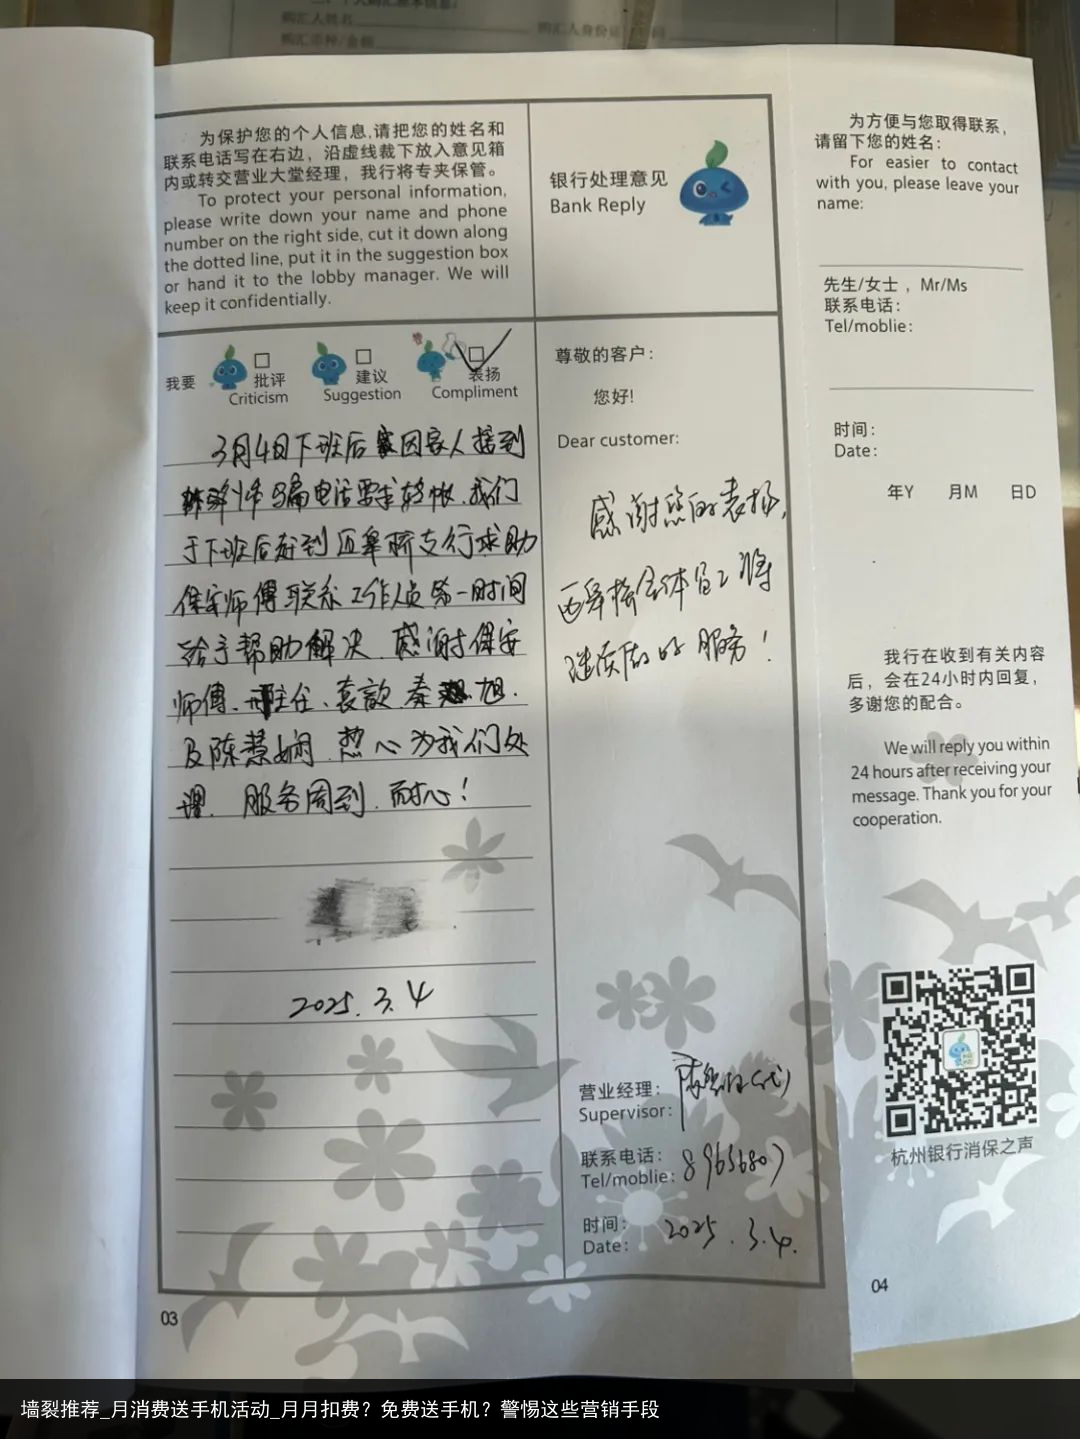 购汇人姓名
购汇人身份证
购汇币种/金额
为保护您的个人信息,请把您的姓名和
联系电话写在右边，沿虚线裁下放入意见箱
内或转交营业大堂经理，我行将专夹保管。
To protect your personal information,
please write down your name and phone
number on the right side, cut it down along
the dotted line, put it in the suggestion box
or hand it to the lobby manager. We will
keep it confidentially.
银行处理意见
Bank Reply
我要
批评
Criticism
建议
Suggestion
表扬
Compliment
3月4日下班后因家人接到
诈骗电话要求转帐.我们
于下班后赶到 支行求助
保安师傅联系工作人员第一时间
给予帮助解决.感谢保安
师傅、主任、袁歆.秦旭.
及陈慧娴.热心为我们处
理.服务周到.耐心!
2025.3.4
尊敬的客户：
您好!
Dear customer:
感谢您的表扬,
全体员工将
继续做好服务!
营业经理：
Supervisor:
联系电话：
Tel/moblie: 89656807
时间：
Date: 2025.3.4.
03
为方便与您取得联系，
请留下您的姓名：
For easier to contact
with you, please leave your
name:
先生/女士，Mr/Ms
联系电话：
Tel/moblie:
时间：
Date:
年Y 月M 日D
我行在收到有关内容
后，会在24小时内回复，
多谢您的配合。
We will reply you within
24 hours after receiving your
message. Thank you for your
cooperation.
杭州银行消保之声
04
墙裂推荐_月消费送手机活动_月月扣费？免费送手机？警惕这些营销手段